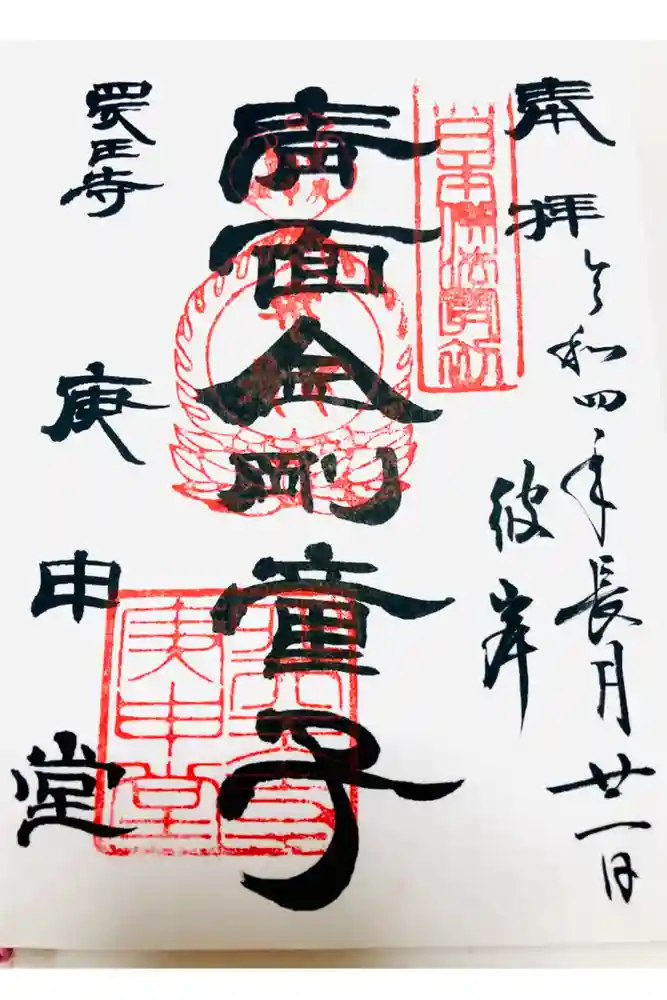 奉拝
令和四年長月廿一日
彼岸
日本佛法最初
青面金剛童子
四天王寺
庚申堂
四天王寺
庚申堂